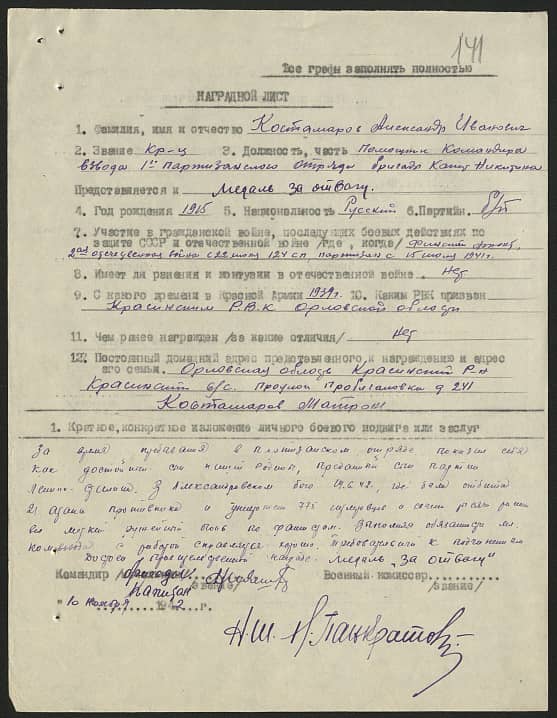 141
Все графы заполнять полностью
НАГРАДНОЙ ЛИСТ
1. Фамилия, имя и отчество Костамаров Александр Иванович
2. Звание Кр-ц 3. Должность, часть Помощник Командира
взвода 1го Партизанского отряда бригада Капит. Никитина
Представляется к Медаль За отвагу.
4. Год рождения 1915 5. Национальность Русский 6. Партийн. б/п
7. Участие в гражданской войне, последующих боевых действиях по
защите СССР и отечественной войне /где, когда/ Финский фронт,
отечественная война с 22 июня 124 сп партизан с 15 июля 1941г.
8. Имеет ли ранения и контузии в отечественной войне нет
9. С какого времени в Красной Армии 1939г. 10. Каким РВК призван
Краснинским Р.В.К Орловской области
11. Чем ранее награжден /за какие отличия/ Нет
12. Постоянный домашний адрес представленного к награждению и адрес
его семьи. Орловская область Краснинский Р-н
Краснинский с/с. д 241
Костамаров
1. Краткое, конкретное изложение личного боевого подвига или заслуг
За время пребывания в партизанском отряде показал себя
как достойный сын нашей Родины, сын партии
Ленина-Сталина. В Александровском бою 19.6.42, где была отбита
21 атака противника и 775
вел меткий огонь по фашистам. обязанности
с работой справляется хорошо, требователен к подчиненным
Достоин правительственной награды Медаль "За отвагу"
Командир
Капитан /звание/ Военный комиссар /звание/
"10 ноября 1942 г.
Н.Ш. Н. Панкратов